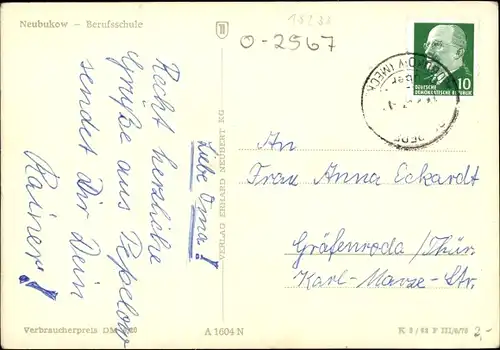 Neubukow — Berufsschule
15238
O-2567
10
DEUTSCHE
DEMOKRATISCHE REPUBLIK
Liebe Oma!
Recht herzliche
Grüße aus Pepelow
sendet Dir Dein
Rainer!
VERLAG ERHARD NEUBERT KG
An
Frau Anna Eckardt
Gräfenroda/Thür.
Karl-Marx-Str.
Verbraucherpreis DM
A 1604 N
K 5/68 F III/6/78
2,-